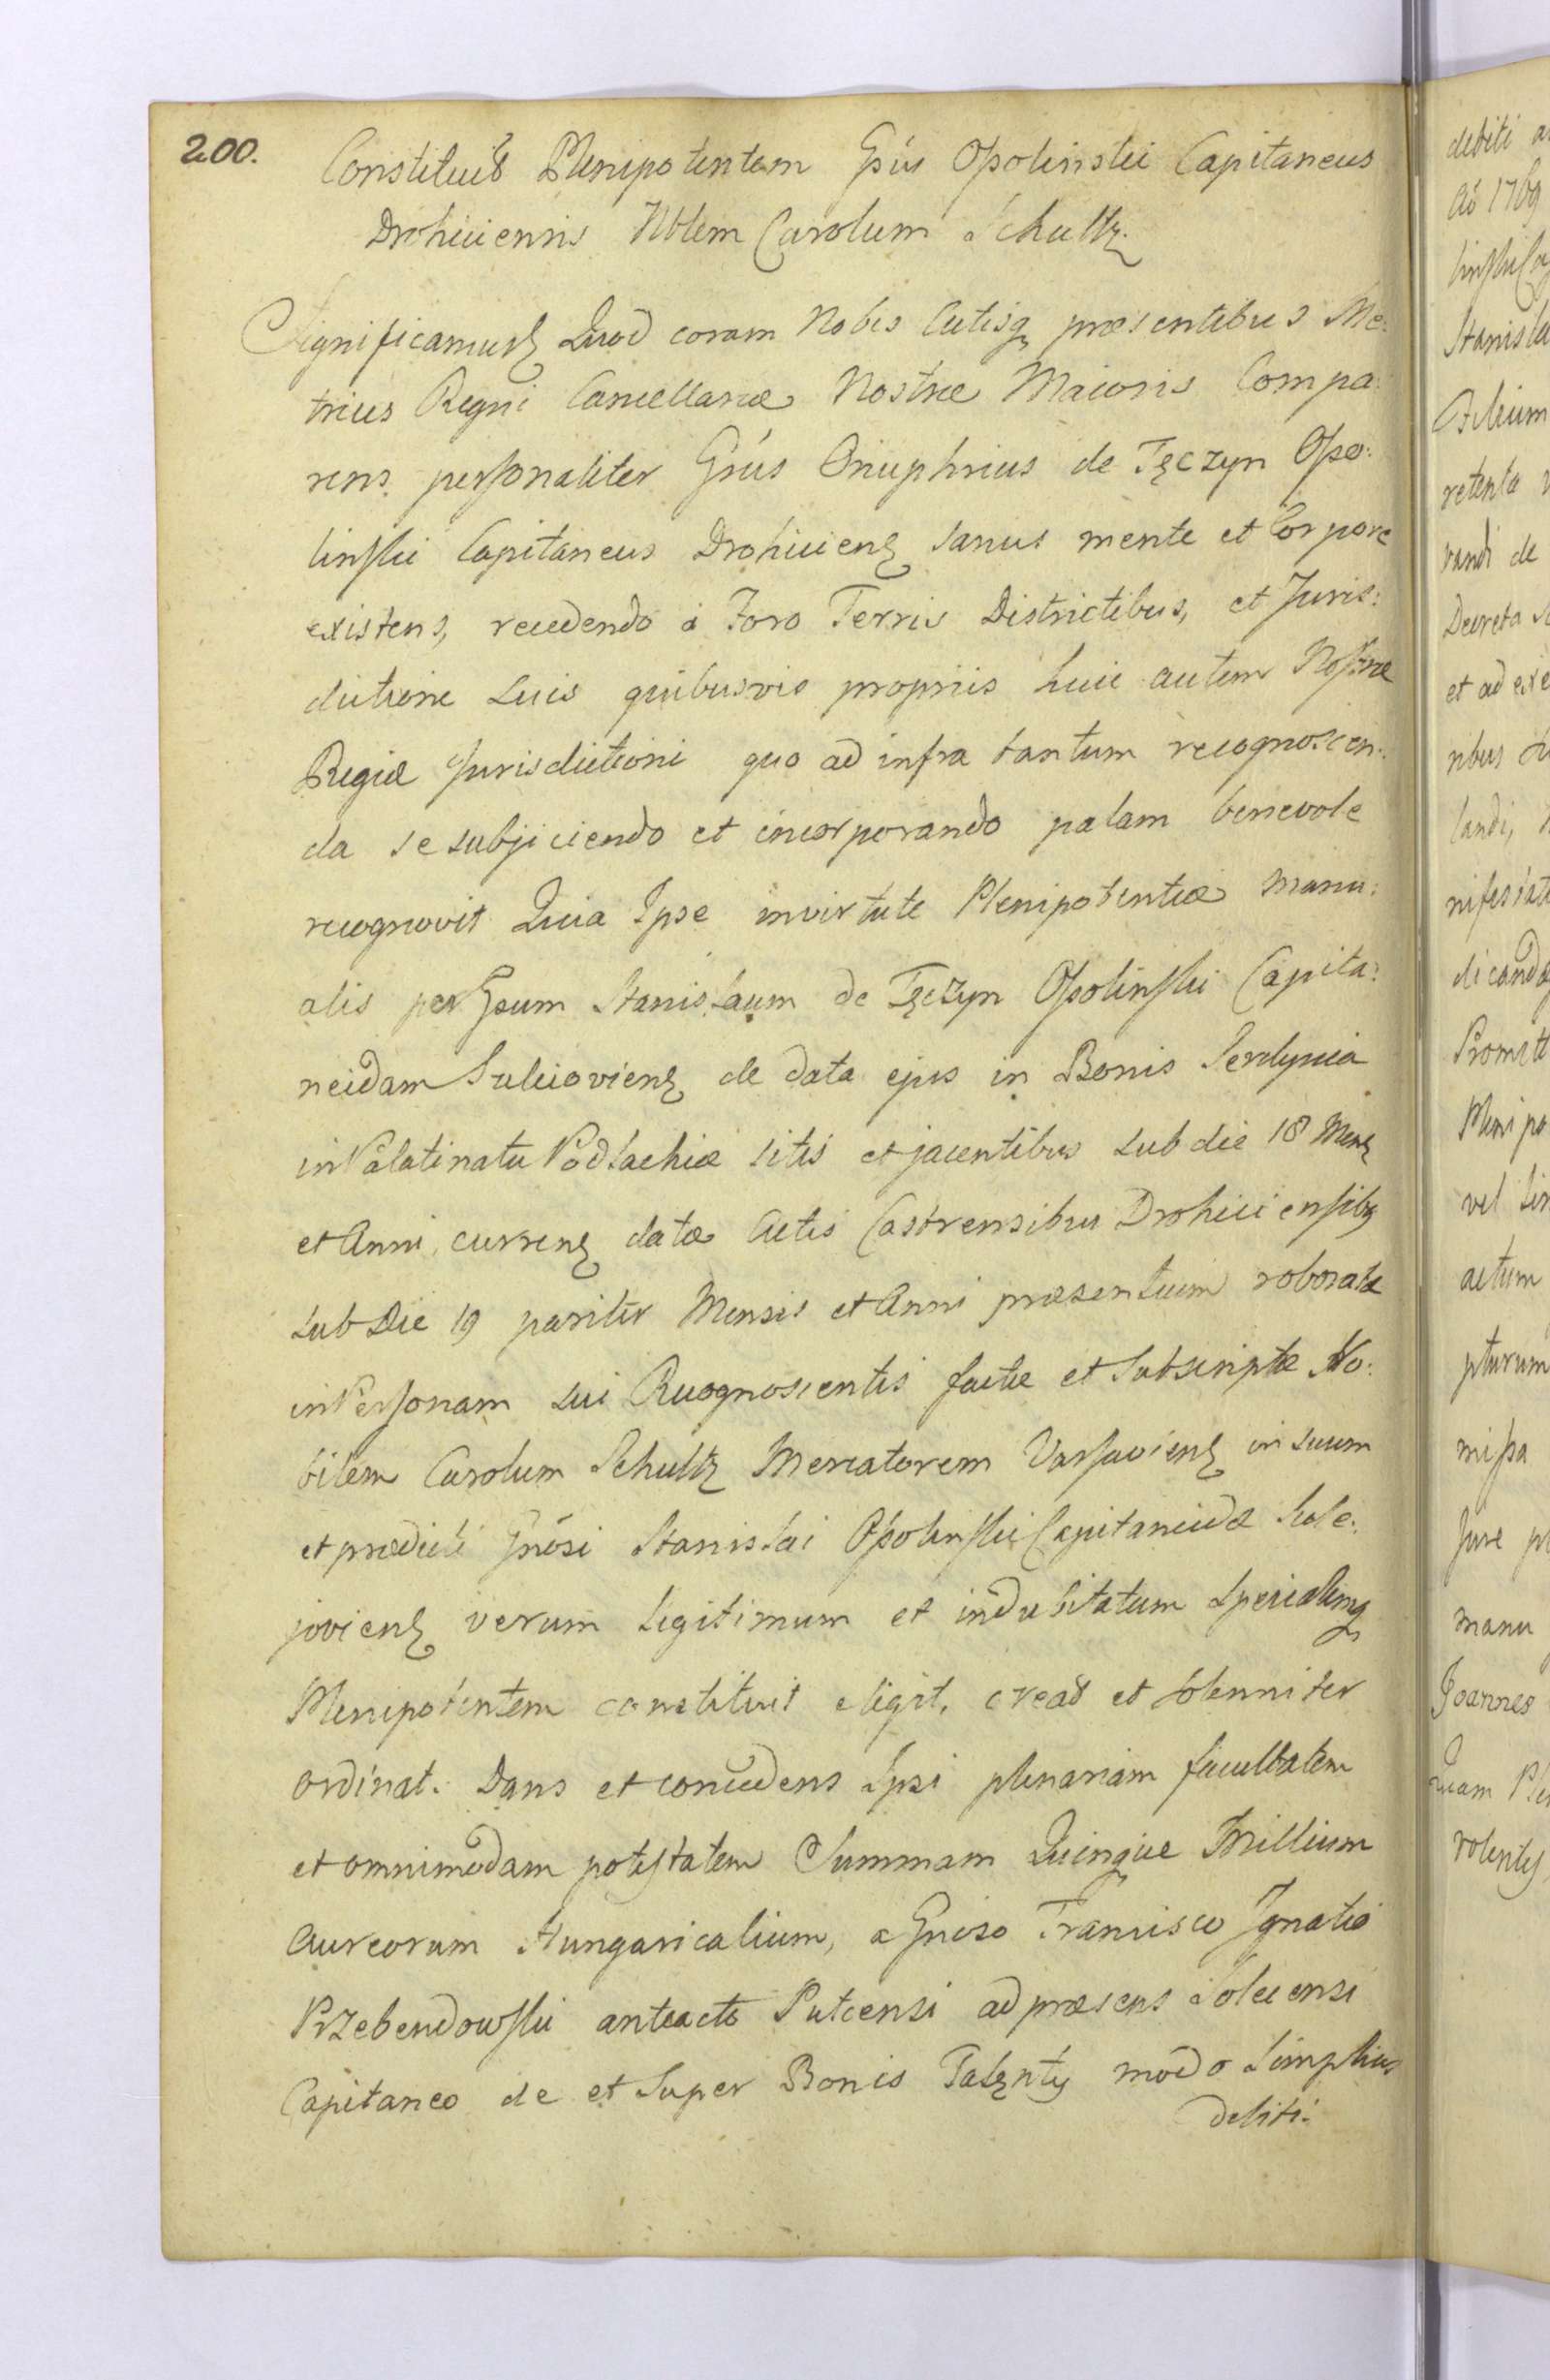 200.
Constituit Plenipotentem Gsús Ossolinskii Capitaneus
Drohiciensis Nblem Carolum Schultz.
Significamusq Quod coram Nobis Actisq praesentibus Me:
trices Regni Cancellariae Nostrae Maioris Compa:
rens personaliter Gńús Onuphrius de Tęczyn Osso:
linskii Capitaneus Drohicienς sanus mente et Corpore
existens, recedendo à Foro Terris Districtibus, et Juris:
dictione suis quibusvis propriis huic autem Nostrae
Regiae Jurisdictioni quo ad infra tantum recognoscen:
da se subjiciendo et incorporando palam benevole
recognovit Quia Ipse invirtute Plenipotentiae manu:
alis per Gsum Stanislaum de Tęczyn Ossolinskii Capita:
neidam Sulejovienς de data ejus in Bonis
in Palatinatu Podlachiae sitis et jacentibus sub die 18 Mens
et Anni currenς datae Actis Castrensibus Drohiciensibς
sub Die 19 pariter Mensis et Anni praesentium roboratae
in Personam sui Recognoscentis factae et Subscriptae No:
bilem Carolum Schultz Mercatorem Varsavienς in suum
et praedicti Gnôsi Stanislai Ossolinskii Capitaneidae Sule:
jovienς verum legitimum et indubitatum Specialemq
Plenipotentem constituit eligit, creat et solenniter
ordinat. Dans et concedens Ipsi plenariam facultatem
et omnimodam potestatem Summam Quinque Millium
Aureorum Hungaricalium, a Gnoso Francisco Ignatio
Przebendowskii anteacto Putcensi ad praesens Solecensi
Capitaneo de et Super Bonis modo simplius
debiti
debiti
Aô 1769
Stanisla
retenta
vandi de
Decreta
et ad exe
ribus
landi,
nifestat
dicanda
Promitt
Pleni po
vel
actum
pturum
missa
Jure
manu
Joannes
Quam Ple
volentes